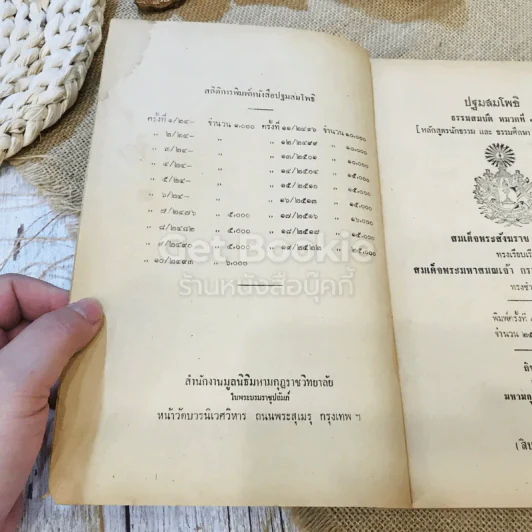 สถิติการพิมพ์หนังสือปฐมสมโพธิ
ครั้งที่ ๑/๒๔– จำนวน ๑,๐๐๐ ครั้งที่ ๑๑/๒๔๙๖ จำนวน ๑๐,๐๐๐
„ ๒/๒๔– „ „ ๑๒/๒๔๙๙ „ ๑๐,๐๐๐
„ ๓/๒๔– „ „ ๑๓/๒๕๐๑ „ ๑๐,๐๐๐
„ ๔/๒๔– „ „ ๑๔/๒๕๐๔ „ ๑๐,๐๐๐
„ ๕/๒๔– „ „ ๑๕/๒๕๑๐ „ ๑๐,๐๐๐
„ ๖/๒๔– „ „ ๑๖/๒๕๑๓ „ ๑๕,๐๐๐
„ ๗/๒๔๗๖ „ ๕,๐๐๐ „ ๑๗/๒๕๑๖ „ ๑๐,๐๐๐
„ ๘/๒๔๘๒ „ ๕,๐๐๐ „ ๑๘/๒๕๑๘ „ ๑๕,๐๐๐
„ ๙/๒๔๙๐ „ ๕,๐๐๐ „ ๑๙/๒๕๒๒ „ ๒๕,๐๐๐
„ ๑๐/๒๔๙๓ „ ๖,๐๐๐
Get Bookie
ร้านหนังสือบุ๊คกี้
สำนักงานมูลนิธิมหามกุฏราชวิทยาลัย
ในพระบรมราชูปถัมภ์
หน้าวัดบวรนิเวศวิหาร ถนนพระสุเมรุ กรุงเทพ ฯ
ปฐมสมโพธิ
ธรรมสมบัติ หมวดที่
[ หลักสูตรนักธรรม และ ธรรมศึกษา
สมเด็จพระสังฆราช
ทรงเรียบเรี
สมเด็จพระมหาสมณเจ้า กร
ทรงชำ
พิมพ์ครั้งที่
จำนวน ๒๕
มหามกุ